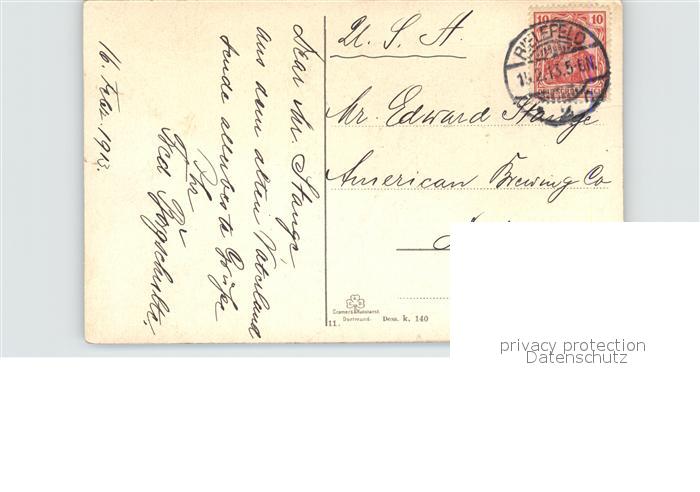 16. Febr. 1913.
Dear Mr. Stange
Aus dem alten Vaterland
sende allerbeste Grüße
Ihr
Fred
U. S. A.
Mr. Edward Stange
American Brewing Co
10 10
BIELEFELD
Cramers Kunstanst.
Dortmund.
11. Dess. k. 140
privacy protection
Datenschutz